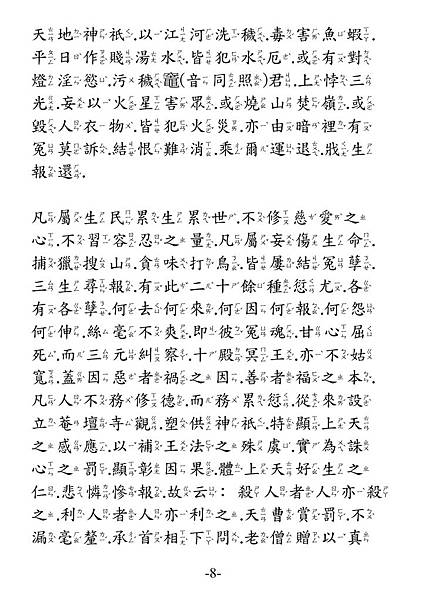 天地神祇.以江河洗穢.毒害魚蝦.
平日作賤湯水.皆犯水厄.或有對
燈淫慾.污穢竈(音同照)君.上悖三
光.妄以火星害眾.或燒山焚嶺.或
毀人衣物.皆犯火災.亦由暗裡有
冤莫訴.結恨難消.乘爾運退.戕生
報還.
凡屬生民.累生累世.不修慈愛之
心.不習容忍之量.凡屬妄傷生命.
捕獵搜山.貪味打鳥.皆屢結冤孽.
三生尋報.有此二十餘種愆尤.各
有各孽.何去何來.何因何報.何怨
何伸.絲毫不爽.即彼冤魂.甘心屈
死.而三元糾察.十殿冥王.亦不姑
寬.蓋因惡者禍之因.善者福之本.
凡人不務修德.而務累愆.從來設
立菴壇寺觀.塑供神祇.特顯上天
之感應.以補王法之殊虞.實為誅
心之罰.顯彰因果.體上天好生之
仁.悲憐慘報.故云：殺人者人亦殺
之.利人者人亦利之.天曹賞罰.不
漏毫釐.承首相下問.老僧贈以真
-8-